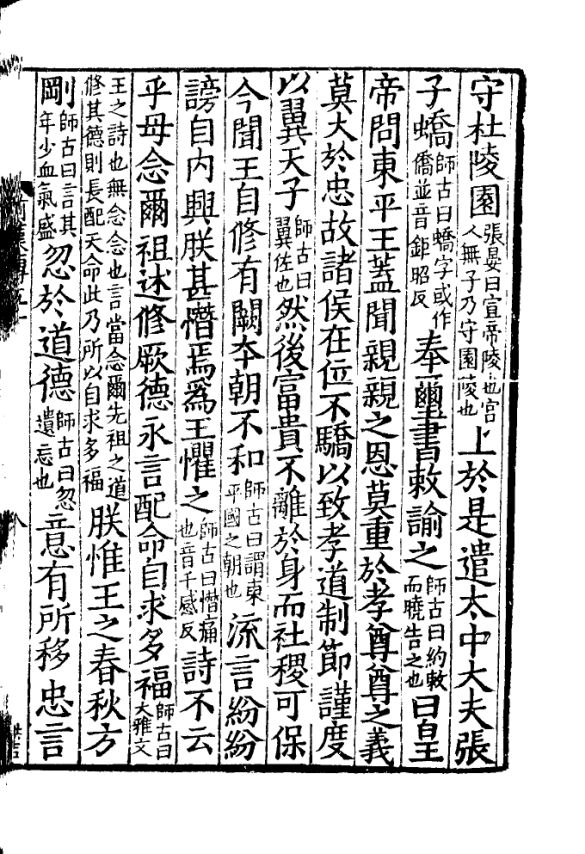 守杜陵園張晏曰宣帝陵也宫人無子乃守園陵也上於是遣太中大夫張
子蟜師古曰蟜字或作僑並音鉅昭反奉璽書敕諭之師古曰約敕而曉告之也曰皇
帝問東平王蓋聞親親之恩莫重於孝尊尊之義
莫大於忠故諸侯在位不驕以致孝道制節謹度
以翼天子師古曰翼佐也然後富貴不離於身而社稷可保
今聞王自修有闕本朝不和師古曰謂東平國之朝也流言紛紛
謗自内興朕甚憯焉爲王懼之師古曰憯痛也音千感反詩不云
乎毋念爾祖述修厥德永言配命自求多福師古曰大雅文
王之詩也無念念也言當念爾先祖之道修其德則長配天命此乃所以自求多福朕惟王之春秋方
剛師古曰言其年少血氣盛忽於道德師古曰忽遺忘也意有所移忠言
八